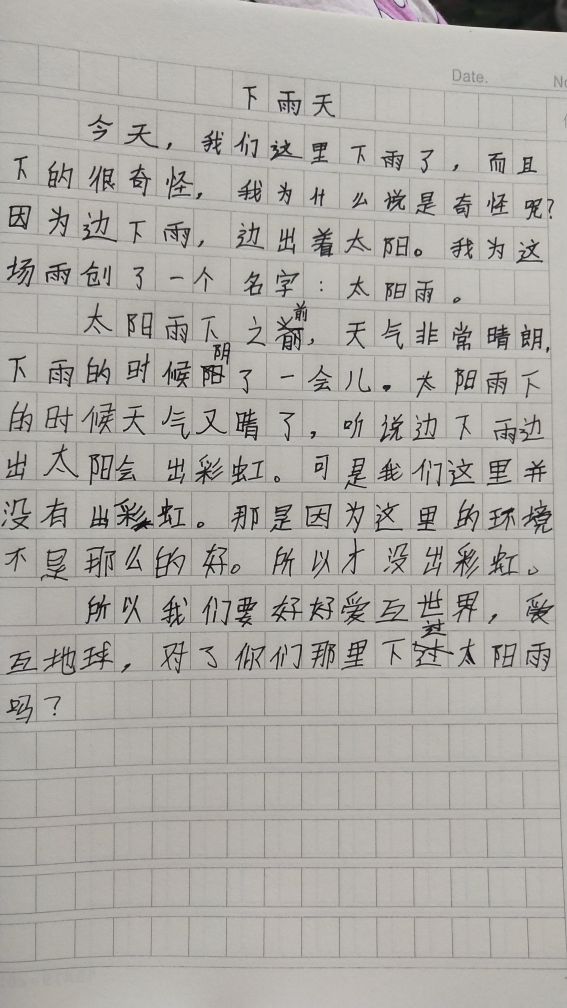 Date.
No
下雨天
今天，我们这里下雨了，而且
下的很奇怪，我为什么说是奇怪呢？
因为边下雨，边出着太阳。我为这
场雨创了一个名字：太阳雨。
太阳雨下之前，天气非常晴朗，
下雨的时候阴了一会儿。太阳雨下
的时候天气又晴了，听说边下雨边
出太阳会出彩虹。可是我们这里并
没有出彩虹。那是因为这里的环境
不是那么的好。所以才没出彩虹。
所以我们要好好爱互世界，爱
互地球，对了你们那里下过太阳雨
吗？